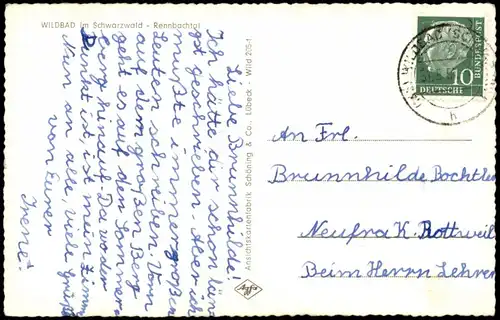 WILDBAD im Schwarzwald - Rennbachtal
Liebe Brunnhilde!
Ich hätte dir schon län
gst geschrieben. Aber ich
mußte immer großen
Leuten schreiben. Vorn
auf dem großen Berg
geht es auf den Sommer
berg hinauf. Da wo der
Punkt ist, ist mein Zimm
Nun an alle, viele Grüße
von Eurer
Irene!
Ansichtskartenfabrik Schöning & Co., Lübeck - Wild 205-1
Agfa
10
DEUTSCHE
BUNDESPOST
WILDBAD (SCH
h
An Frl.
Brunnhilde Bochtler
Neufra K. Rottweil
Beim Herrn Lehrer